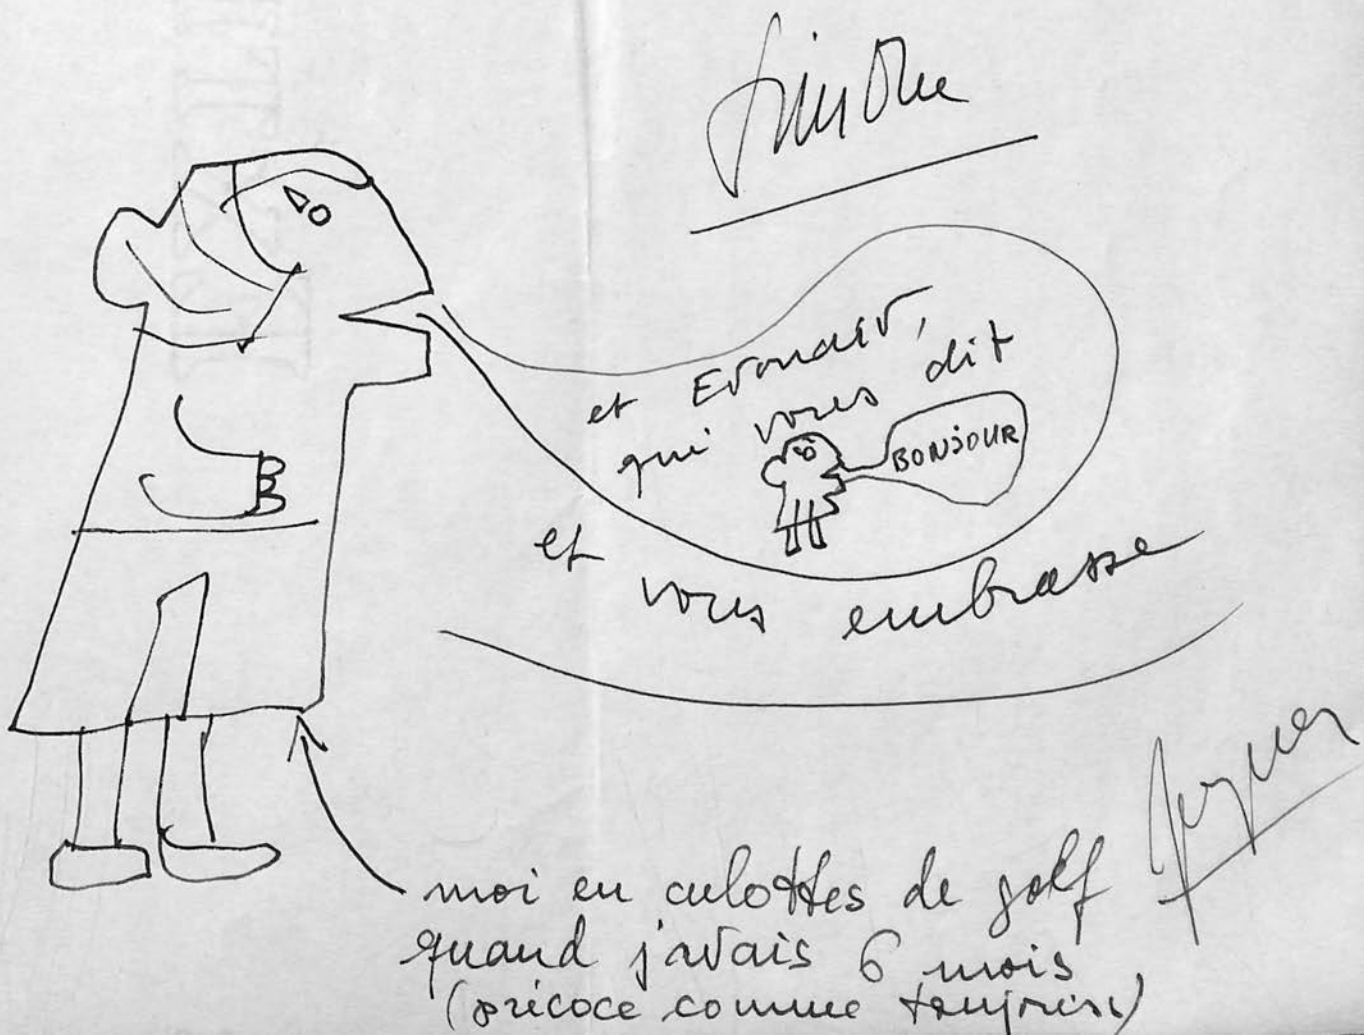 Simone
et Edouard,
qui vous dit
BONJOUR
et vous embrasse
moi en culottes de golf
quand j'avais 6 mois
(précoce comme toujours)